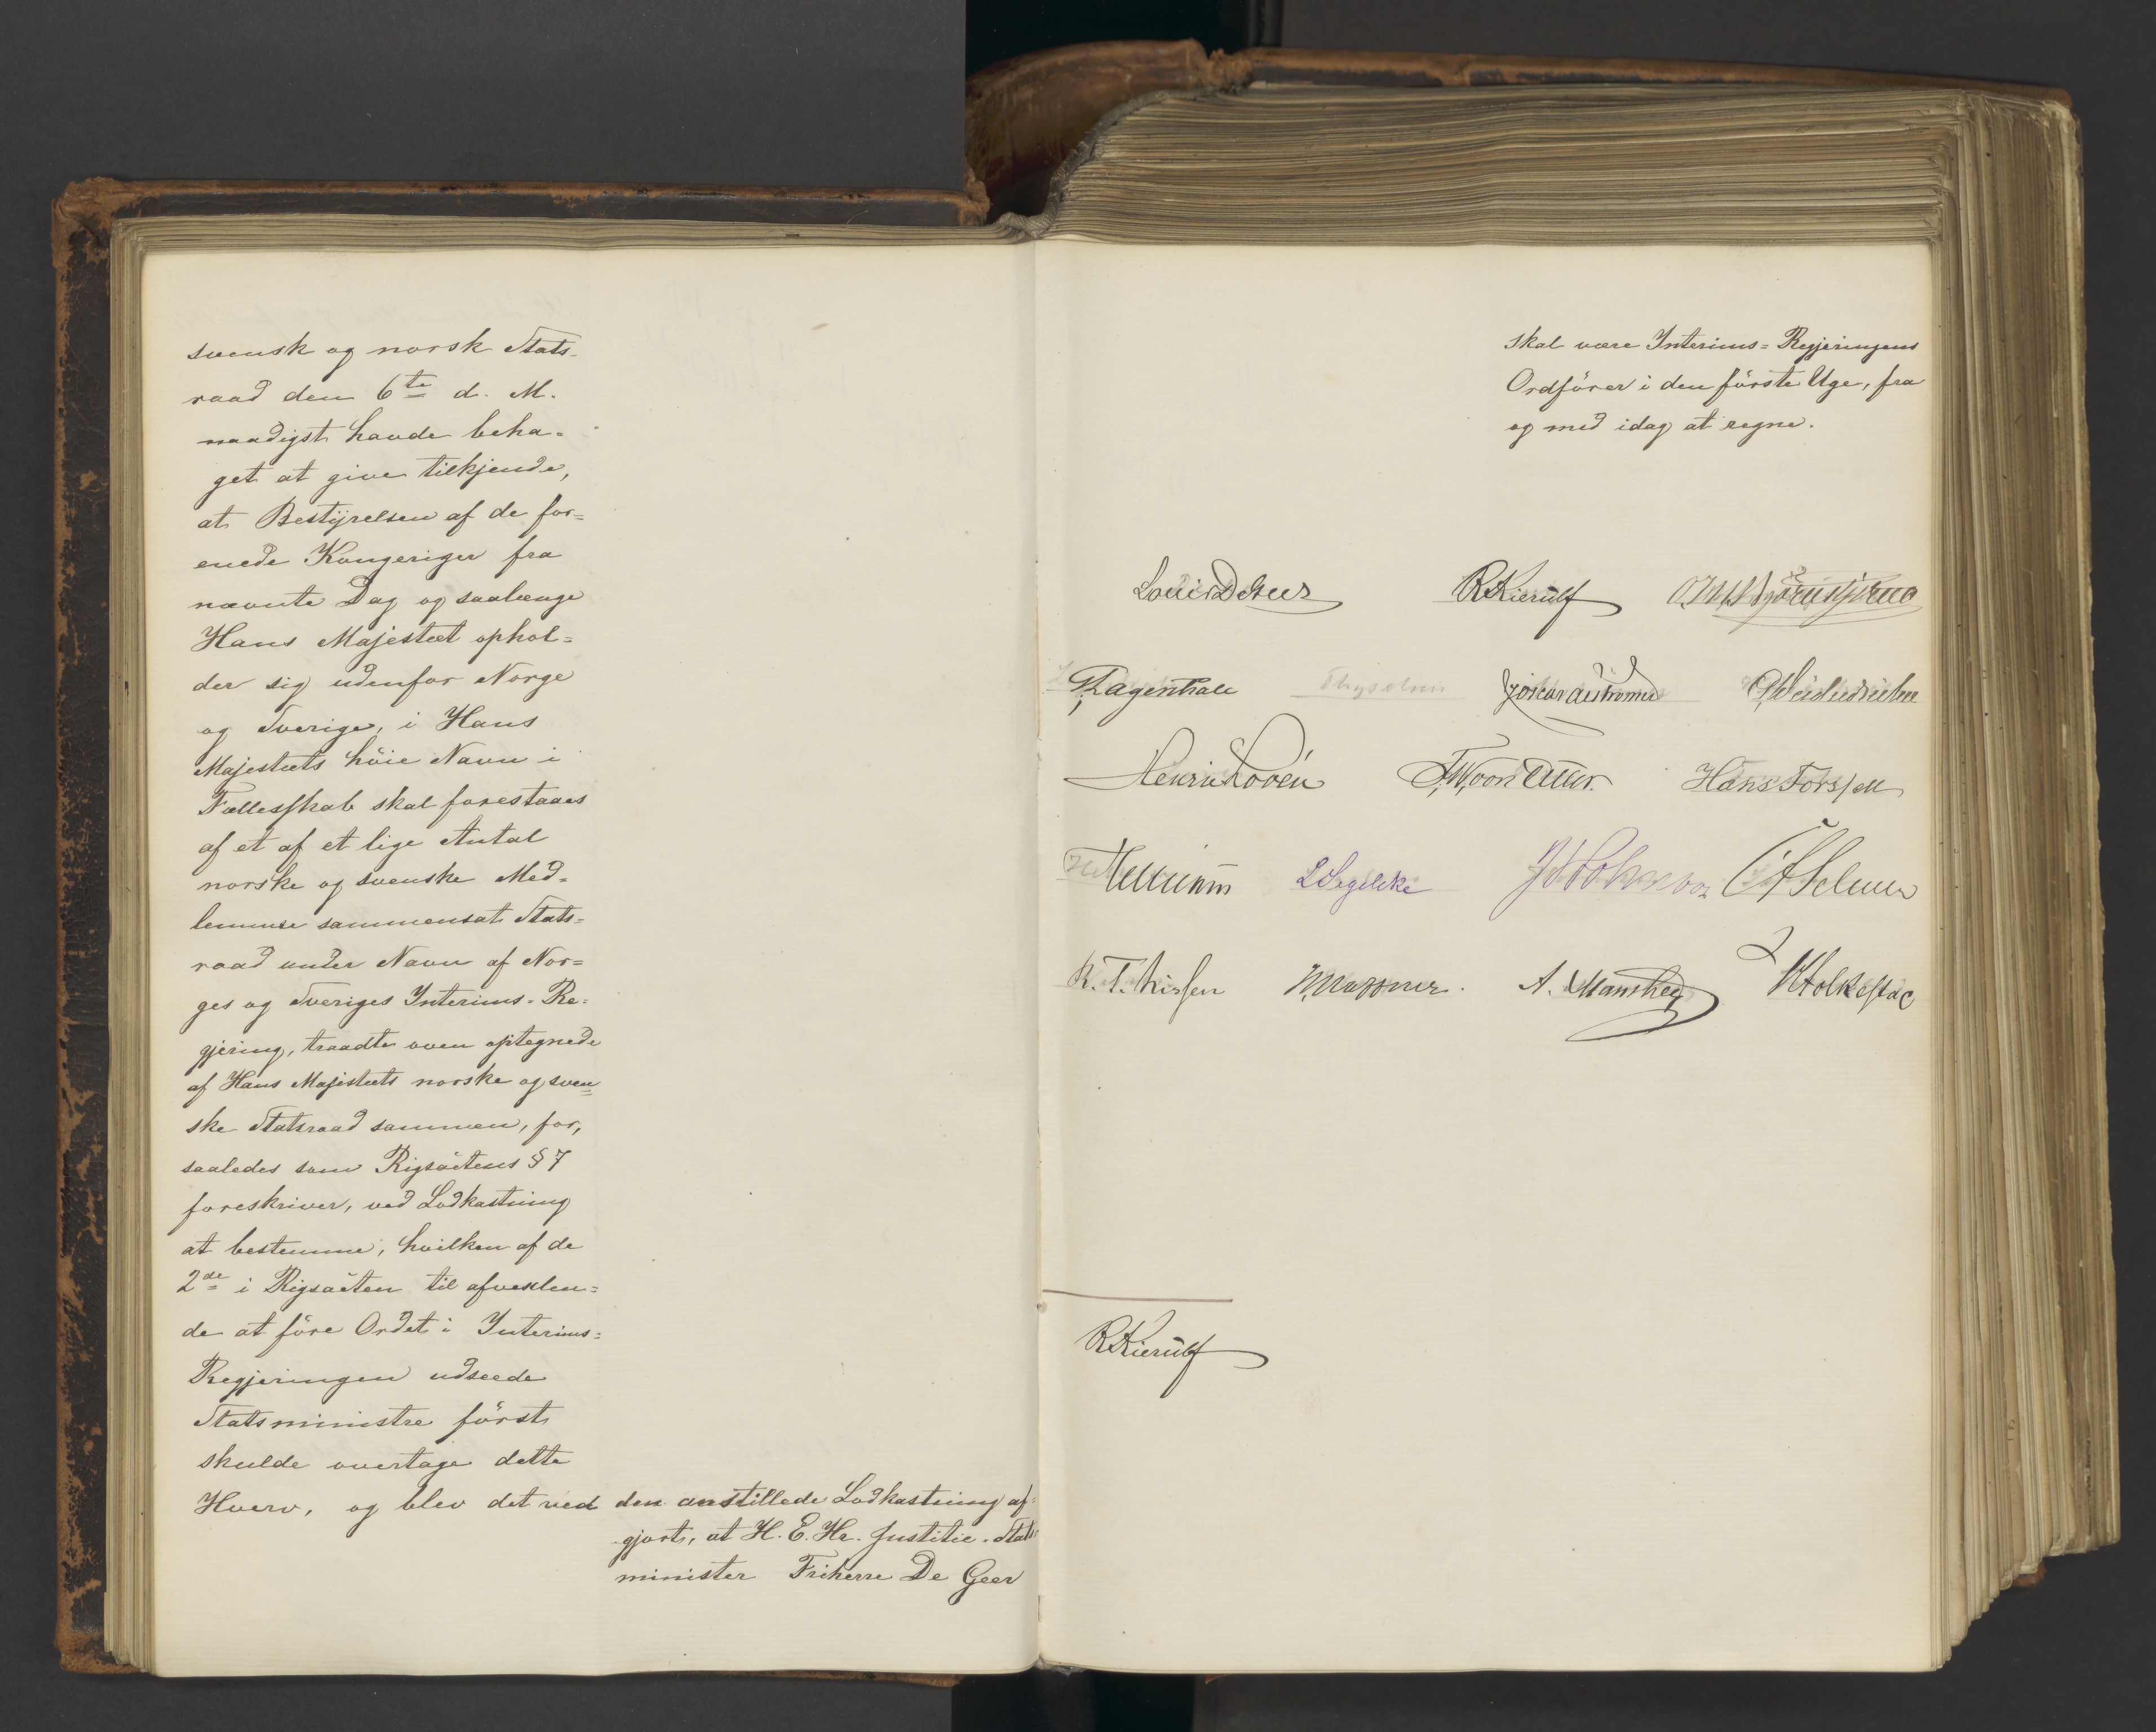 svensk og norsk Stats-
raad den 6te d. M.
naadigst havde beha-
get at give tilkjende,
at Bestyrelsen af de for-
enede Kongeriger fra
nævnte Dag og saalænge
Hans Majestæt ophol-
der sig udenfor Norge
og Sverige, i Hans
Majestæts höie Navn i
Fællesskab skal forestaaes
af et af et lige Antal
norske og svenske Med-
lemmer sammensat Stats-
raad under Navn af Nor-
ges og Sveriges Interims-Re-
gjering, traadte oven optegnede
af Hans Majestæts norske og sven-
ske Statsraad sammen, for,
saaledes som Rigsacteus § 7
foreskriver, ved Lodkastning
at bestemme, hvilken af de
2de i Rigsacten til afvexlen-
de at före Ordet i Interims-
Regjeringen udseede
Statsministre först
skulde overtage dette
Hverv, og blev det ved den anstillede Lodkastning af-
gjort, at H. E. Hr. Justitie-Stats-
minister Friherre De Geer
skal være Interims-Regjeringens
Ordförer i den förste Uge, fra
og med idag at regne.
Louis De Geer RKierulf O M Björnstjerna
Lagerstråle Thyselius
Henric Lovén F.W. von Otter. Hans Forssell
Vult L Segelcke J Holmboe C A Selmer
R. T. Nissen A. Munthe
RKierulf